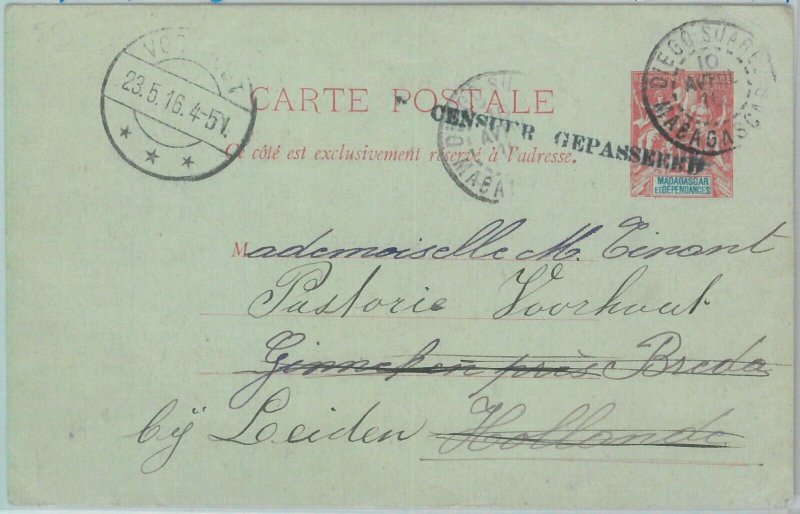 DIEGO SUAREZ
10
AVRIL
MADAGASCAR
23.5.16.4-5V.
CARTE POSTALE
DIEGO SU
MADA
CENSUUR GEPASSEERD
Ce côté est exclusivement réservé à l'adresse.
MADAGASCAR
ET DÉPENDANCES
Mademoiselle M. Tinant
Pastorie Voorhout
Ginneken près Breda
bij Leiden Hollande